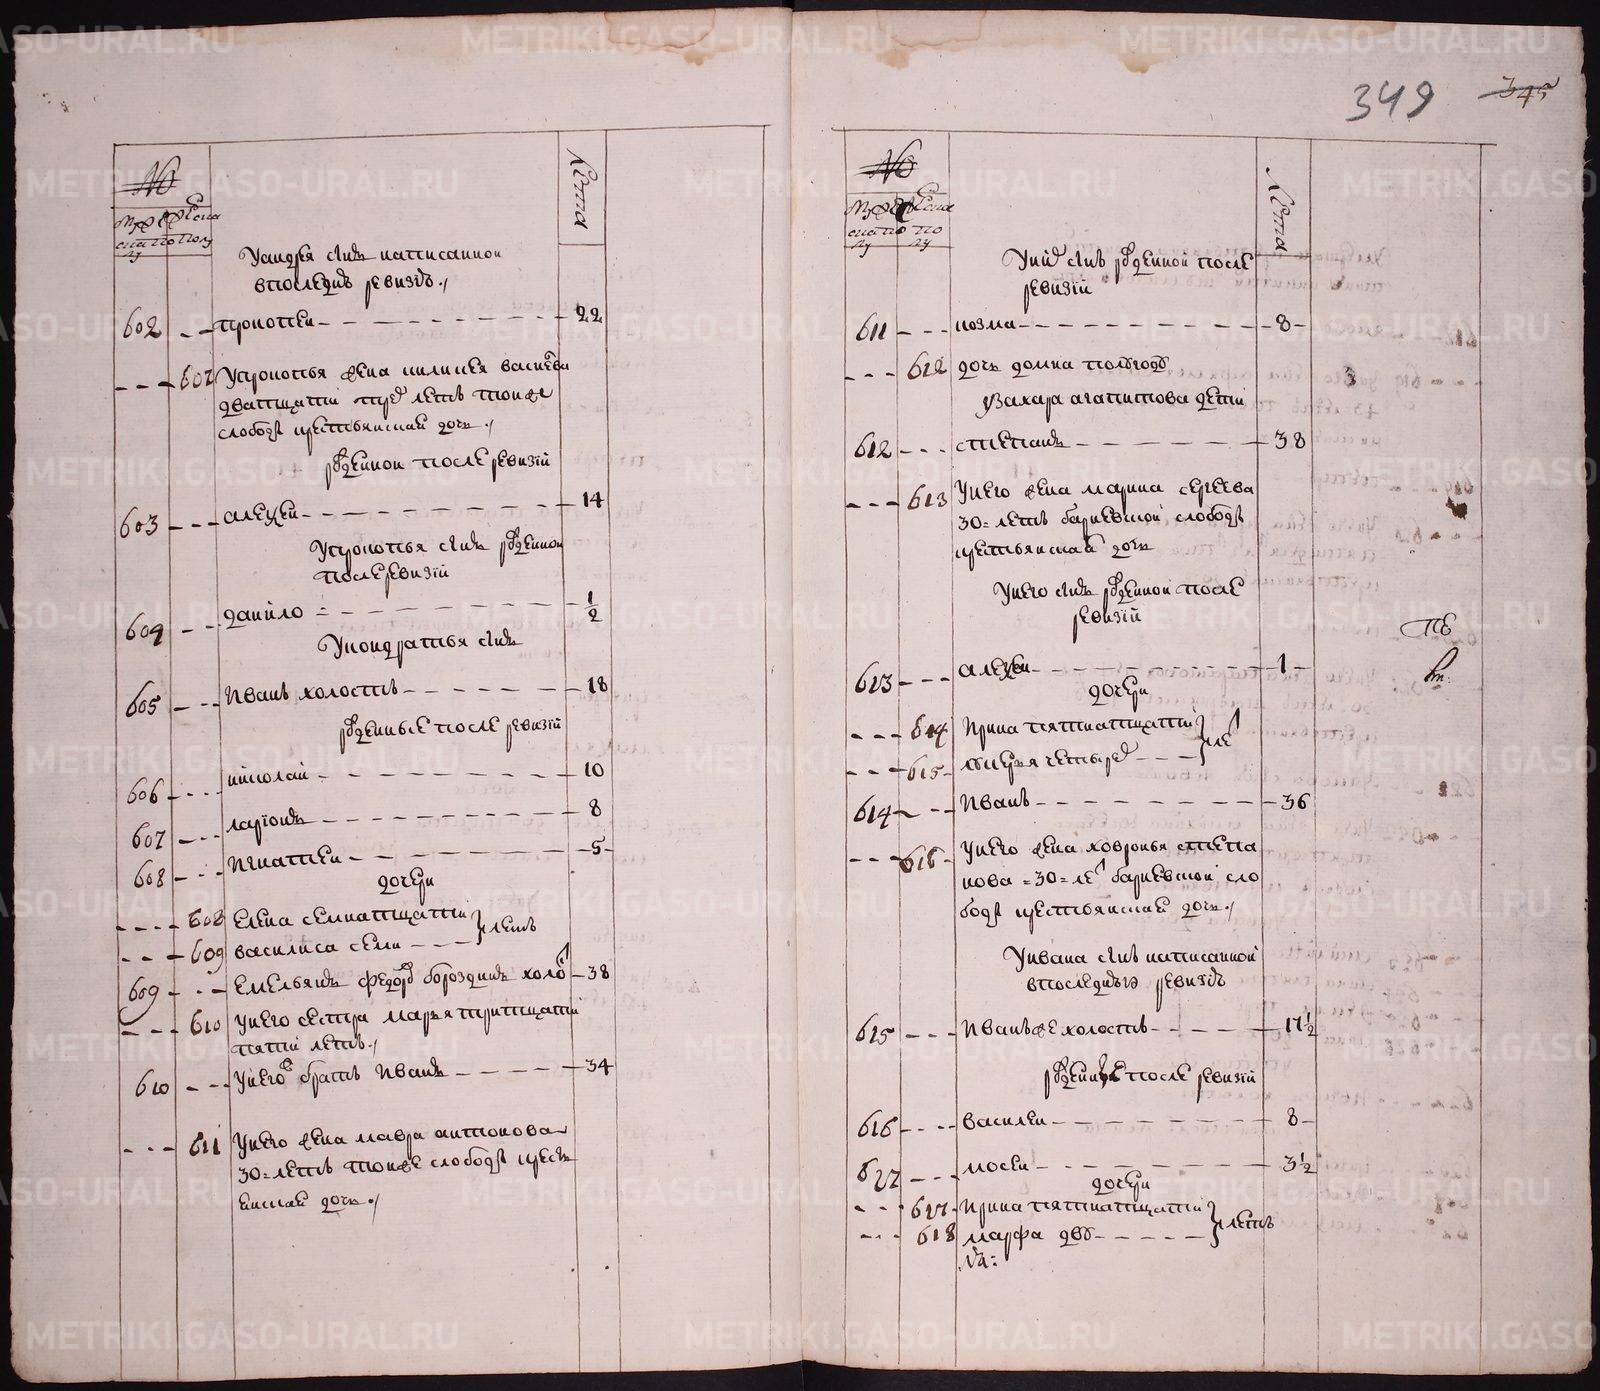 349 345
№
Лета
Уандрея сынъ написанной
впоследнѣ ревизѣ
602 прокопеи 22
607 Упрокопья жена киликея василева
дватцати трех летъ тоиже
слободы крестьянская дочь
рожденнои после ревизiи
603 алеѯеи 14
Упрокопья сынъ рожденнои
после ревизiи
604 данило 1/2
Укондратья сынъ
605 Иванъ холостъ 18
рожденные после ревизiи
606 николаи 10
607 ларионъ 8
608 Игнатеи 5
дочери
608 Елена семнатцати
летъ
609 василиса семи
609 Емельянъ федоров бороздинъ холост 38
610 Унего сестра марья тритцати
пяти летъ
610 Унего же братъ Иванъ 34
611 Унего жена мавра антонова
30 летъ тоиже слободы кресть
енская дочь
№
Лета
Уних сынъ рожденной после
ревизiи
611 козма 8
612 дочь домна полугоду
Узахара агапитова дети
612 степанъ 38
613 Унего жена марина сергеева
30 летъ барневской слободы
крестьянская дочь
Унего сынъ рожденной после
ревизiи
613 алеѯеи 1
дочери
614 Ирина пятнатцати
лет
615 лукерья четырех
614 Иванъ 36
616 Унего жена ховронья степа
нова 30 лет барневской сло
боды крестьянская дочь
Уивана сынъ написанной
впоследнѣи ревизѣ
615 Иванъ же холостъ 17 1/2
рожденные после ревизiи
616 василеи 8
617 мосеи 3 1/2
дочери
617 Ирина пятнатцати
летъ
618 марфа дву